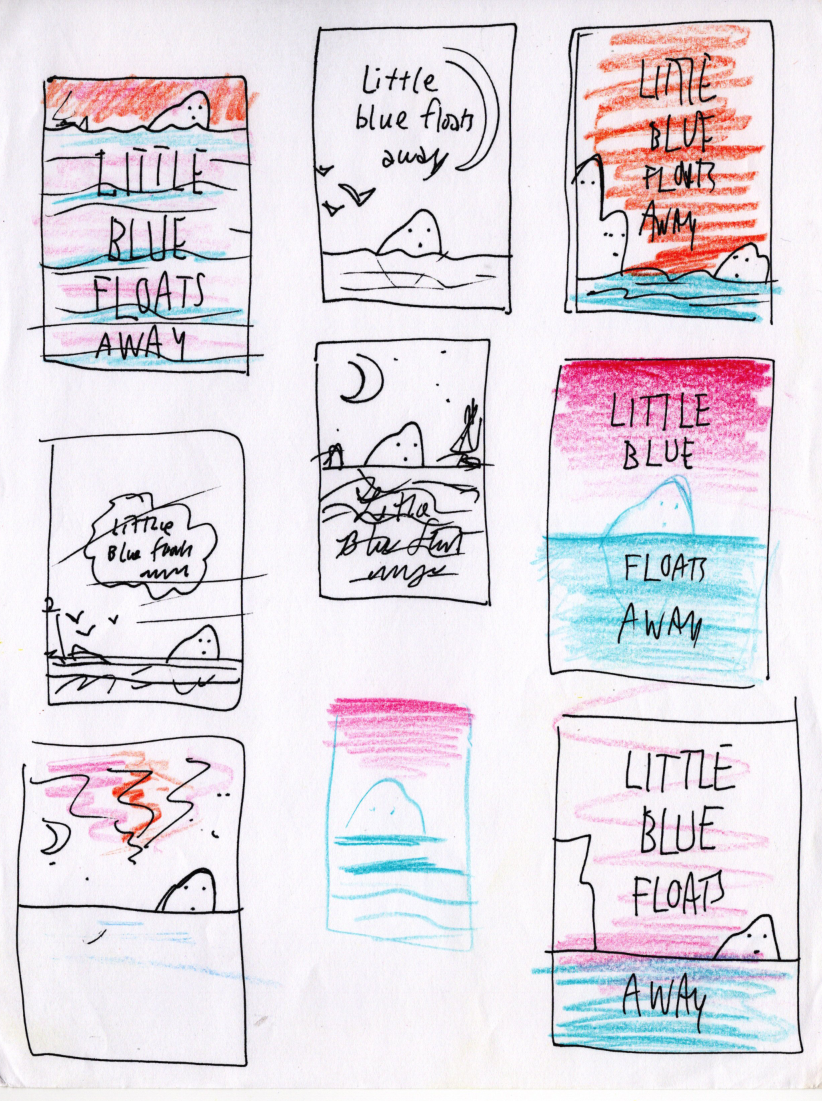 LITTLE
BLUE
FLOATS
AWAY
Little
blue floats
away
LITTLE
BLUE
FLOATS
AWAY
Little
Blue floats
Little
Blue
LITTLE
BLUE
FLOATS
AWAY
LITTLE
BLUE
FLOATS
AWAY